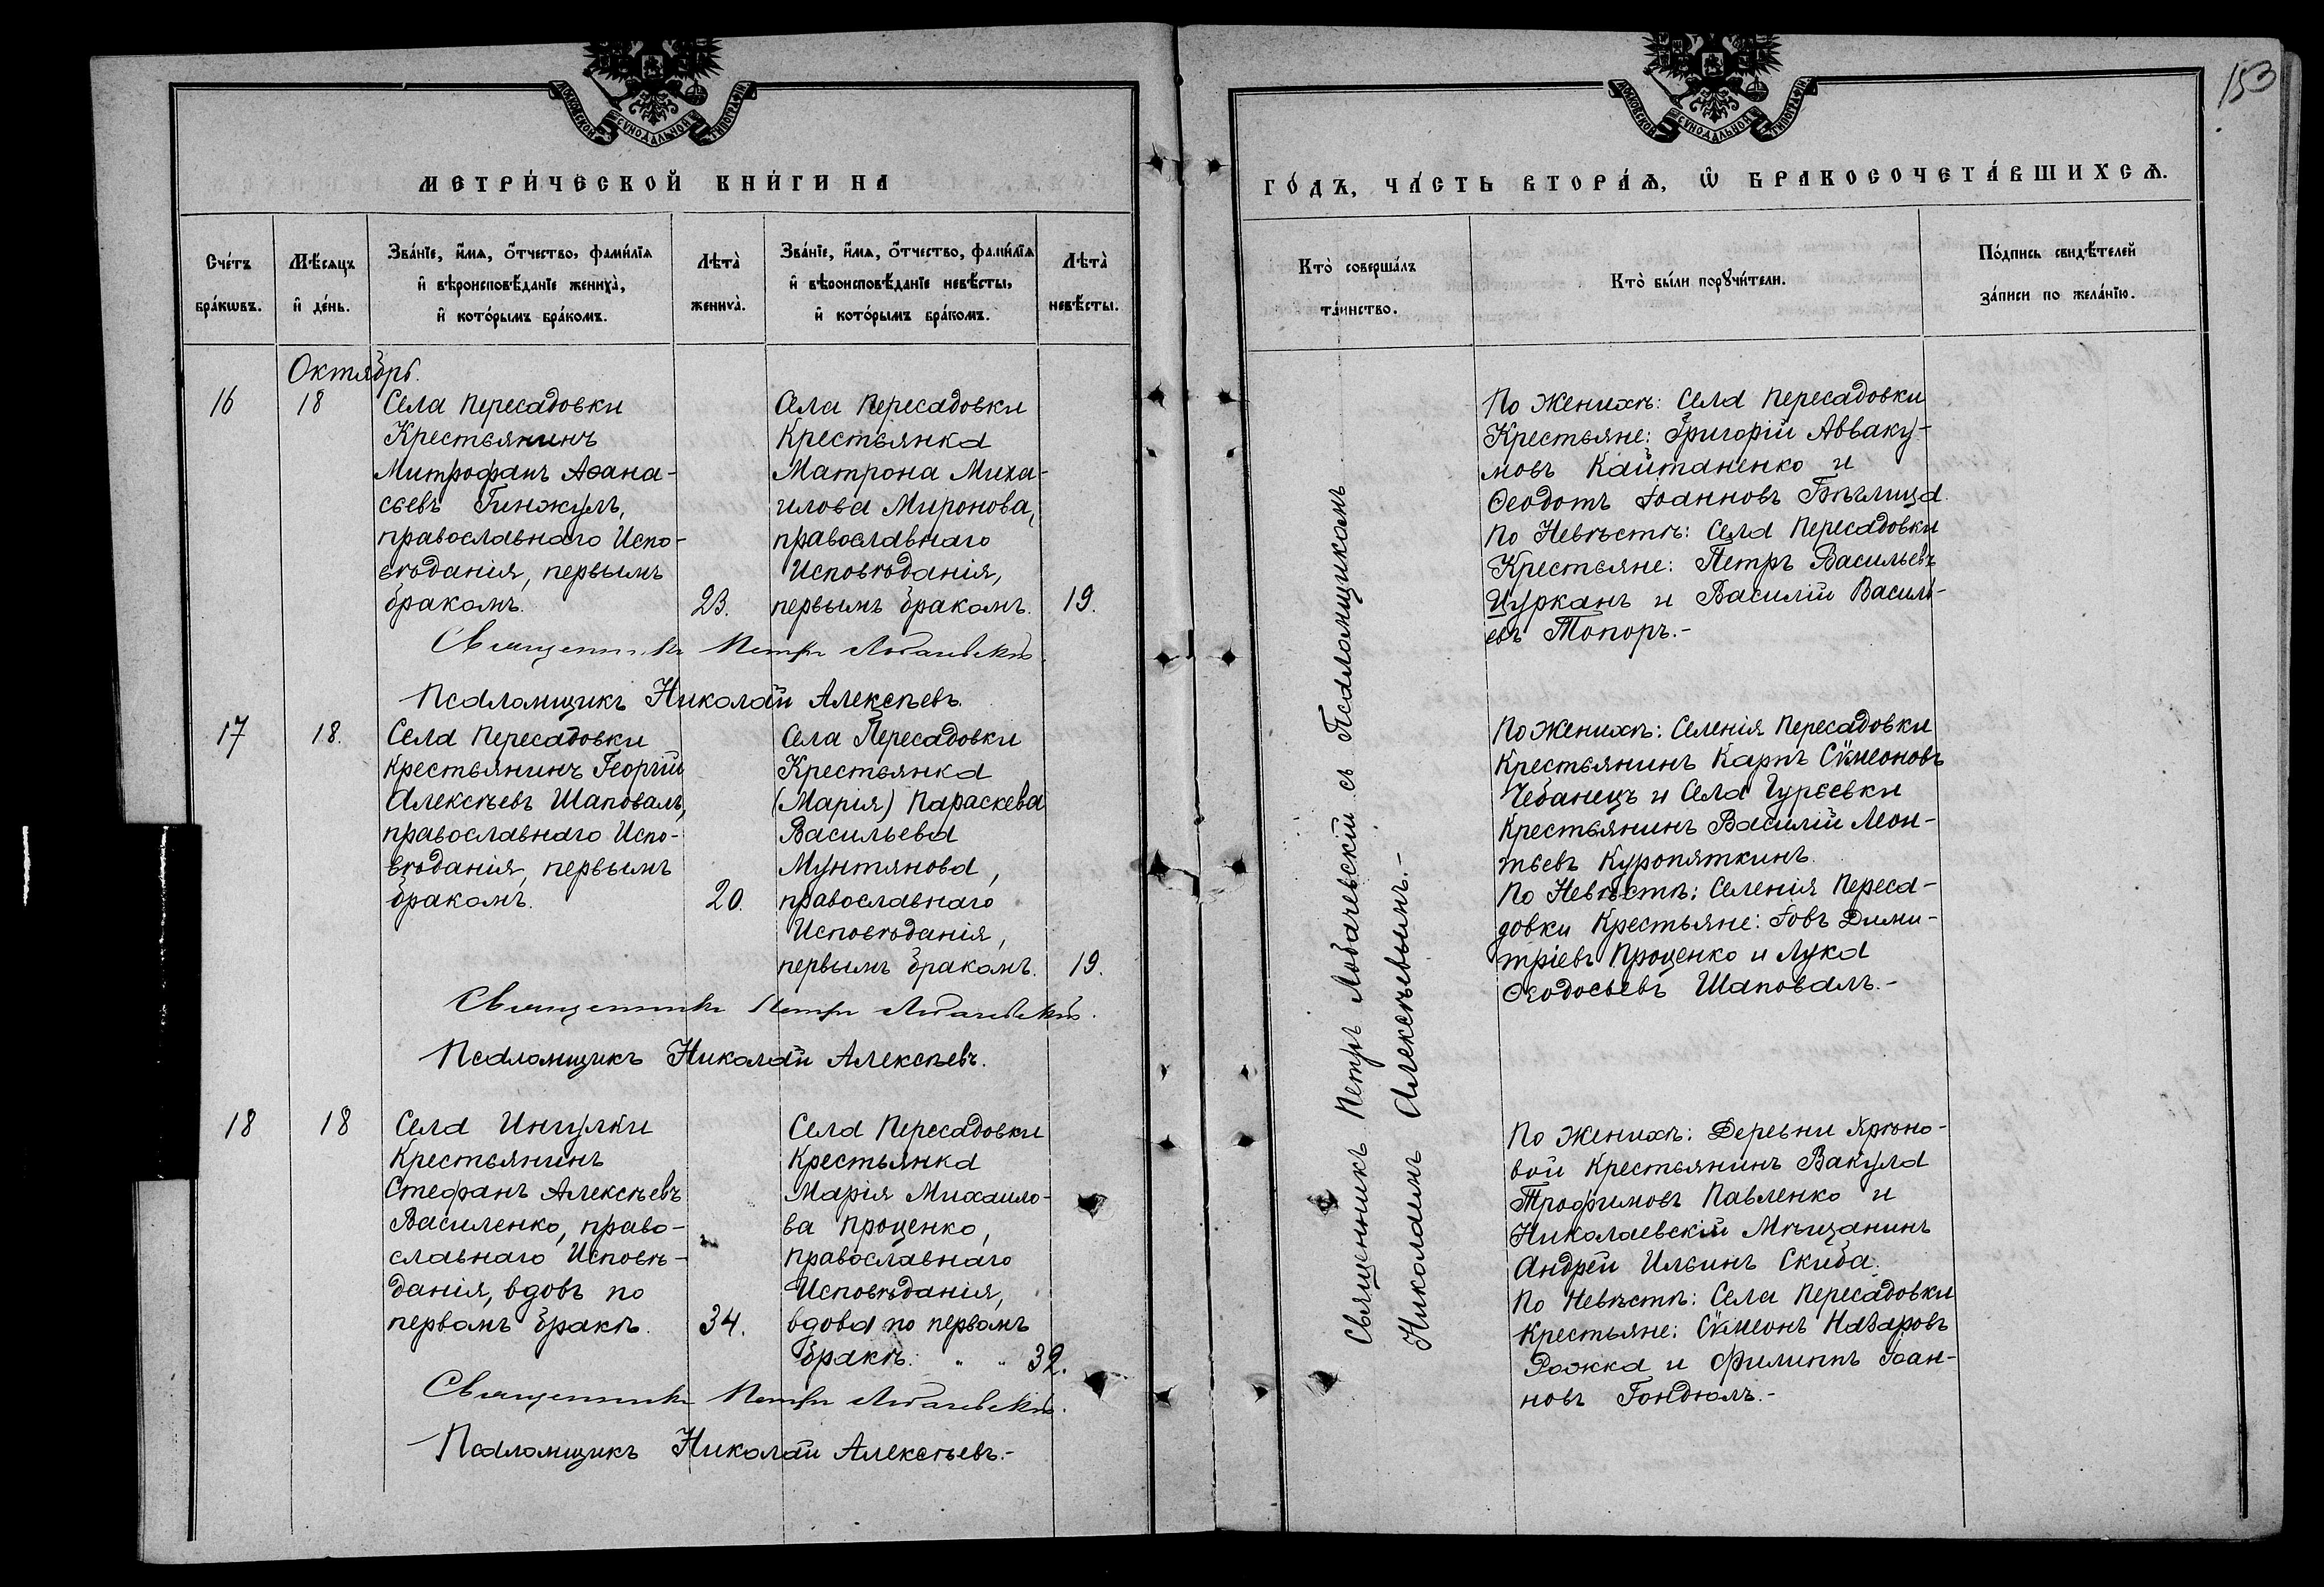 МОСКОВСКОЙ СУНОДАЛЬНОЙ ТИПОГРАФІИ
МЕТРИ́ЧЕСКОЙ КНИ́ГИ НА
Сче́тъ
бра́кѡвъ.
Мѣ́сяцъ
и҆ де́нь.
Зва́нїе, и҆́мѧ, ѻ҆́тчество, фами́лїѧ
и҆ вѣроисповѣ́данїе жениха̀,
и҆ кото́рымъ бра́комъ.
Лѣта̀
жениха̀.
Зва́нїе, и҆́мѧ, ѻ҆́тчество, фами́лїѧ
и҆ вѣроисповѣ́данїе невѣ́сты,
и҆ кото́рымъ бра́комъ.
Лѣта̀
невѣ́сты.
Октябрь.
16
18
Села Пересадовки
Крестьянинъ
Митрофанъ Аѳана-
сьевъ Гинжулъ,
православнаго Испо-
вѣданія, первымъ
бракомъ.
23.
Села Пересадовки
Крестьянка
Матрона Миха-
илова Миронова,
православнаго
Исповѣданія,
первымъ бракомъ.
19.
Священникъ Петръ Лобачевскій.
Псаломщикъ Николай Алексѣевъ.
17
18.
Села Пересадовки
Крестьянинъ Георгій
Алексѣевъ Шаповалъ,
православнаго Испо-
вѣданія, первымъ
бракомъ.
20.
Села Пересадовки
Крестьянка
(Марія) Параскева
Васильева
Мунтянова,
православнаго
Исповѣданія,
первымъ бракомъ.
19.
Священникъ Петръ Лобачевскій.
Псаломщикъ Николай Алексѣевъ.
18
18
Села Ингулки
Крестьянинъ
Стефанъ Алексѣевъ
Василенко, право-
славнаго Исповѣ-
данія, вдовъ по
первомъ бракѣ.
34.
Села Пересадовки
Крестьянка
Марія Михаило-
ва Проценко,
православнаго
Исповѣданія,
вдова по первомъ
бракѣ. " " 32.
Священникъ Петръ Лобачевскій.
Псаломщикъ Николай Алексѣевъ.-
153
МОСКОВСКОЙ СУНОДАЛЬНОЙ ТИПОГРАФІИ
ГО́ДЪ, ЧА́СТЬ ВТОРА́Ѧ, Ѡ҆ БРАКОСОЧЕТА́ВШИХСѦ.
Кто̀ соверша́лъ
та́инство.
Кто̀ бы́ли порꙋчи́тели.
По́дпись свидѣ́телей
за́писи по жела́нїю.
Священникъ Петръ Лобачевскій съ Псаломщикомъ
Николаемъ Алексѣевымъ.-
По Женихѣ: Села Пересадовки
Крестьяне: Григорій Авваку-
мовъ Кайтаненко и
Ѳеодотъ Іоанновъ Бѣлица.
По Невѣстѣ: Села Пересадовки
Крестьяне: Петръ Васильевъ
Цурканъ и Василій Василь-
евъ Топоръ.-
По Женихѣ: Селенія Пересадовки
Крестьянинъ Карпъ Сѵмеоновъ
Чебанецъ и Села Гурьевки
Крестьянинъ Василій Леон-
тьевъ Куропяткинъ.
По Невѣстѣ: Селенія Переса-
довки Крестьяне: Іовъ Дими-
тріевъ Проценко и Лука
Ѳеодосьевъ Шаповалъ.-
По Женихѣ: Деревни Хрѣно-
вой Крестьянинъ Вакула
Трофимовъ Павленко и
Николаевскій Мѣщанинъ
Андрей Ильинъ Скиба.
По Невѣстѣ: Села Пересадовки
Крестьяне: Сѵмеонъ Назаровъ
Рожка и Филиппъ Іоан-
новъ Гондюлъ.-